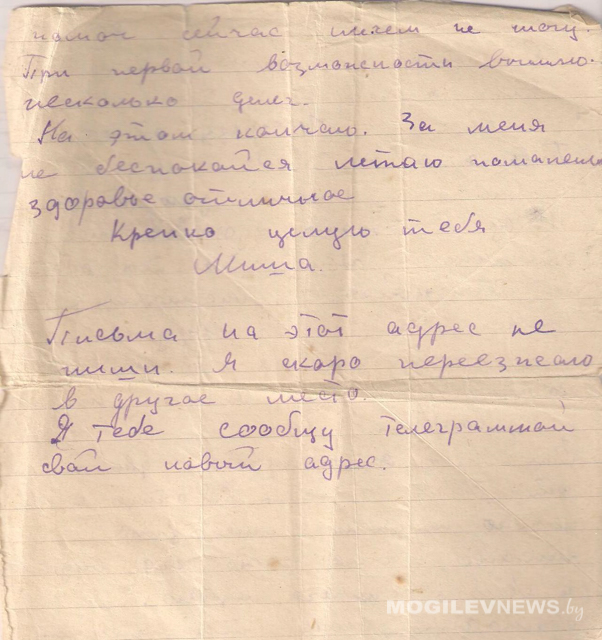 помоч сейчас ничем не могу.
При первой возможности вышлю
несколько денег.
На этом кончаю. За меня
не беспокойся летаю помален
здоровье отличное
Крепко целую тебя
Миша.
Письма на этот адрес не
пиши. Я скоро переезжаю
в другое место.
Я тебе сообщу телеграммой
свой новый адрес.
MOGILEVNEWS.by